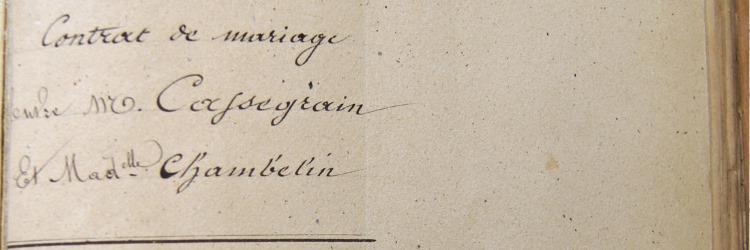 Contrat de mariage
Entre M. Cassegrain
Et Mad.elle Chambelin